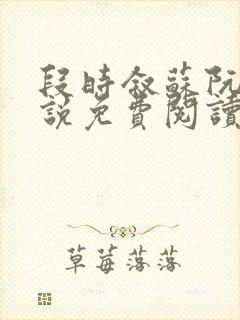 段時敘蘇阮
說免費閱讀
草莓落落